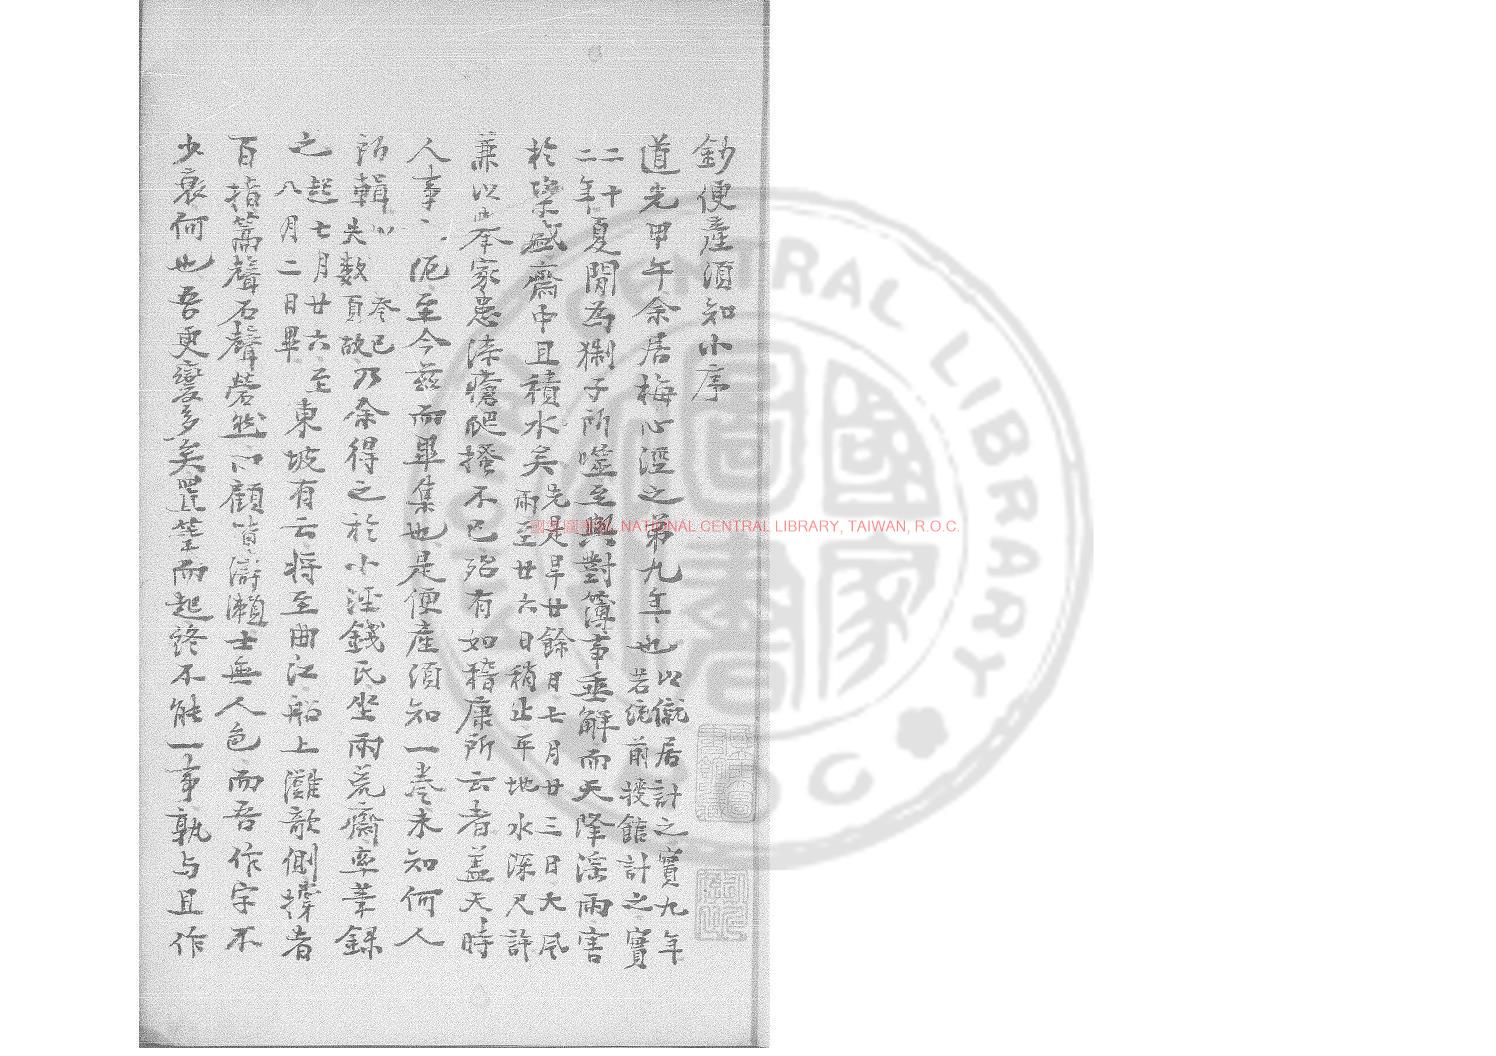 鈔便產須知小序
道光甲午余居梅心涇之第九年也以僦居計之實九年若統前授館計之實
二十二年夏間為猘子所噬至與對簿事垂解而天降淫雨害
於粢盛齋中且積水矣先是旱廿餘日七月廿三日大風雨至廿六日稍止平地水深尺許
兼以此举家患漆瘡爬搔不已殆有如稽康所云者蓋天時
人事㐅㐅厄至今茲而畢集也是便產須知一卷未知何人
所輯失數頁故癸巳乃余得之於小涇錢氏坐雨荒齋率筆録
之起七月廿六至八月二日畢東坡有云將至曲江船上灘欹側撐者
百指篙聲石聲犖然四顧皆濤瀨士無人色而吾作字不
少衰何也吾更變多矣置筆而起終不能一事孰与且作
國家圖書館
NATIONAL CENTRAL LIBRARY
R.O.C.
國家圖書館, NATIONAL CENTRAL LIBRARY, TAIWAN, R.O.C.